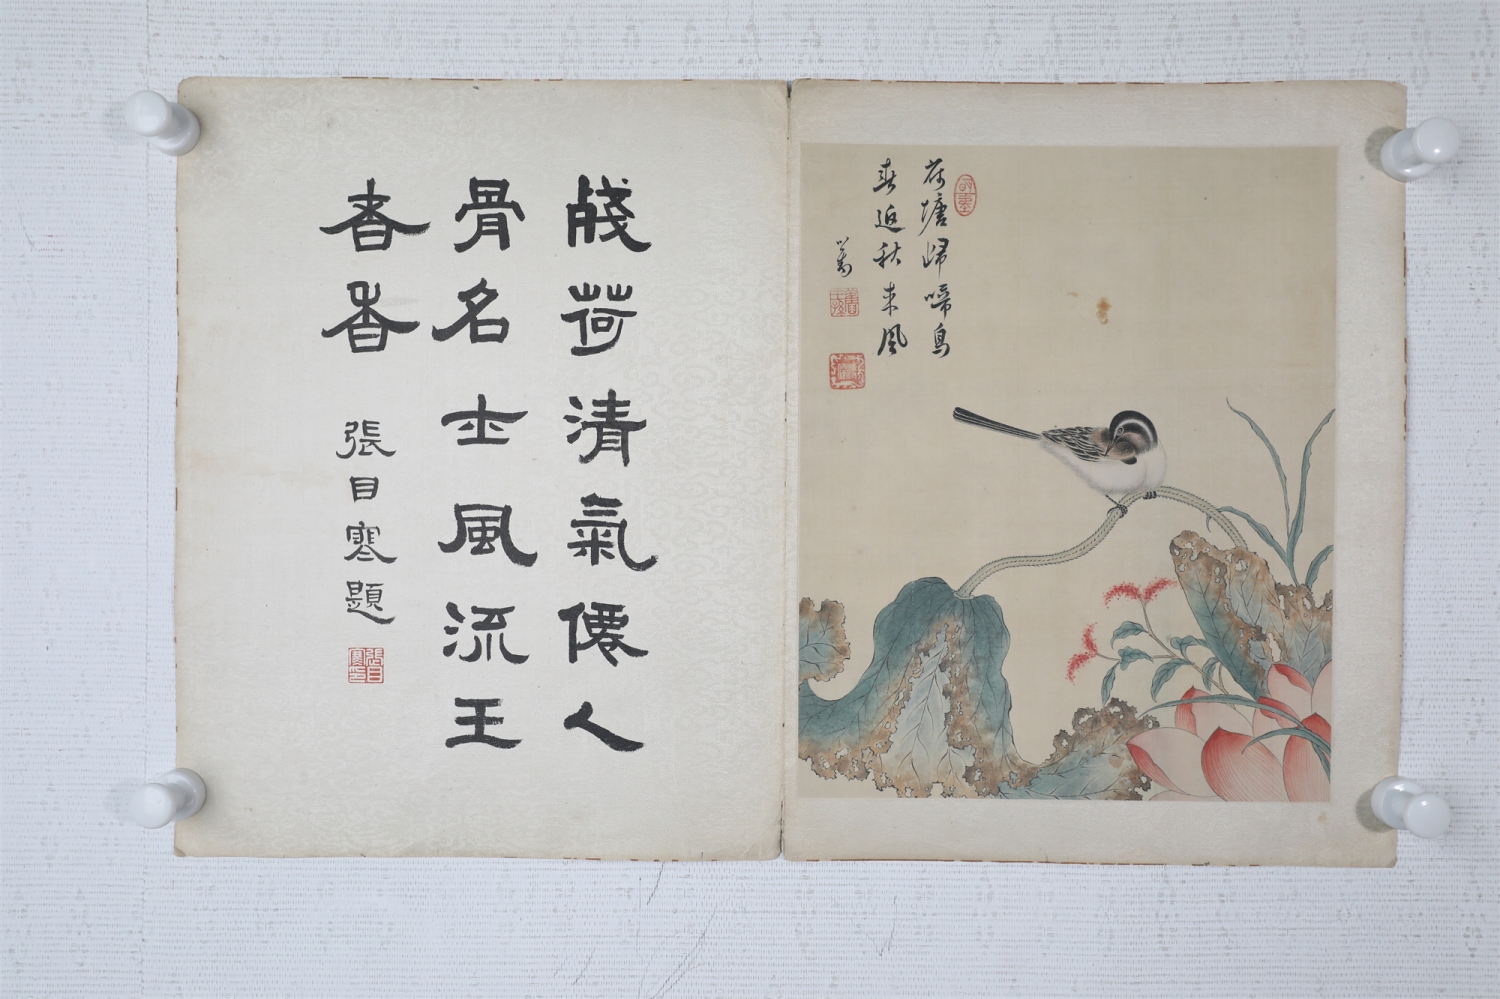 荷塘歸啼鳥
秋來風
殘荷清氣僊人
骨名士風流王
者香
張目寒題
張目寒印